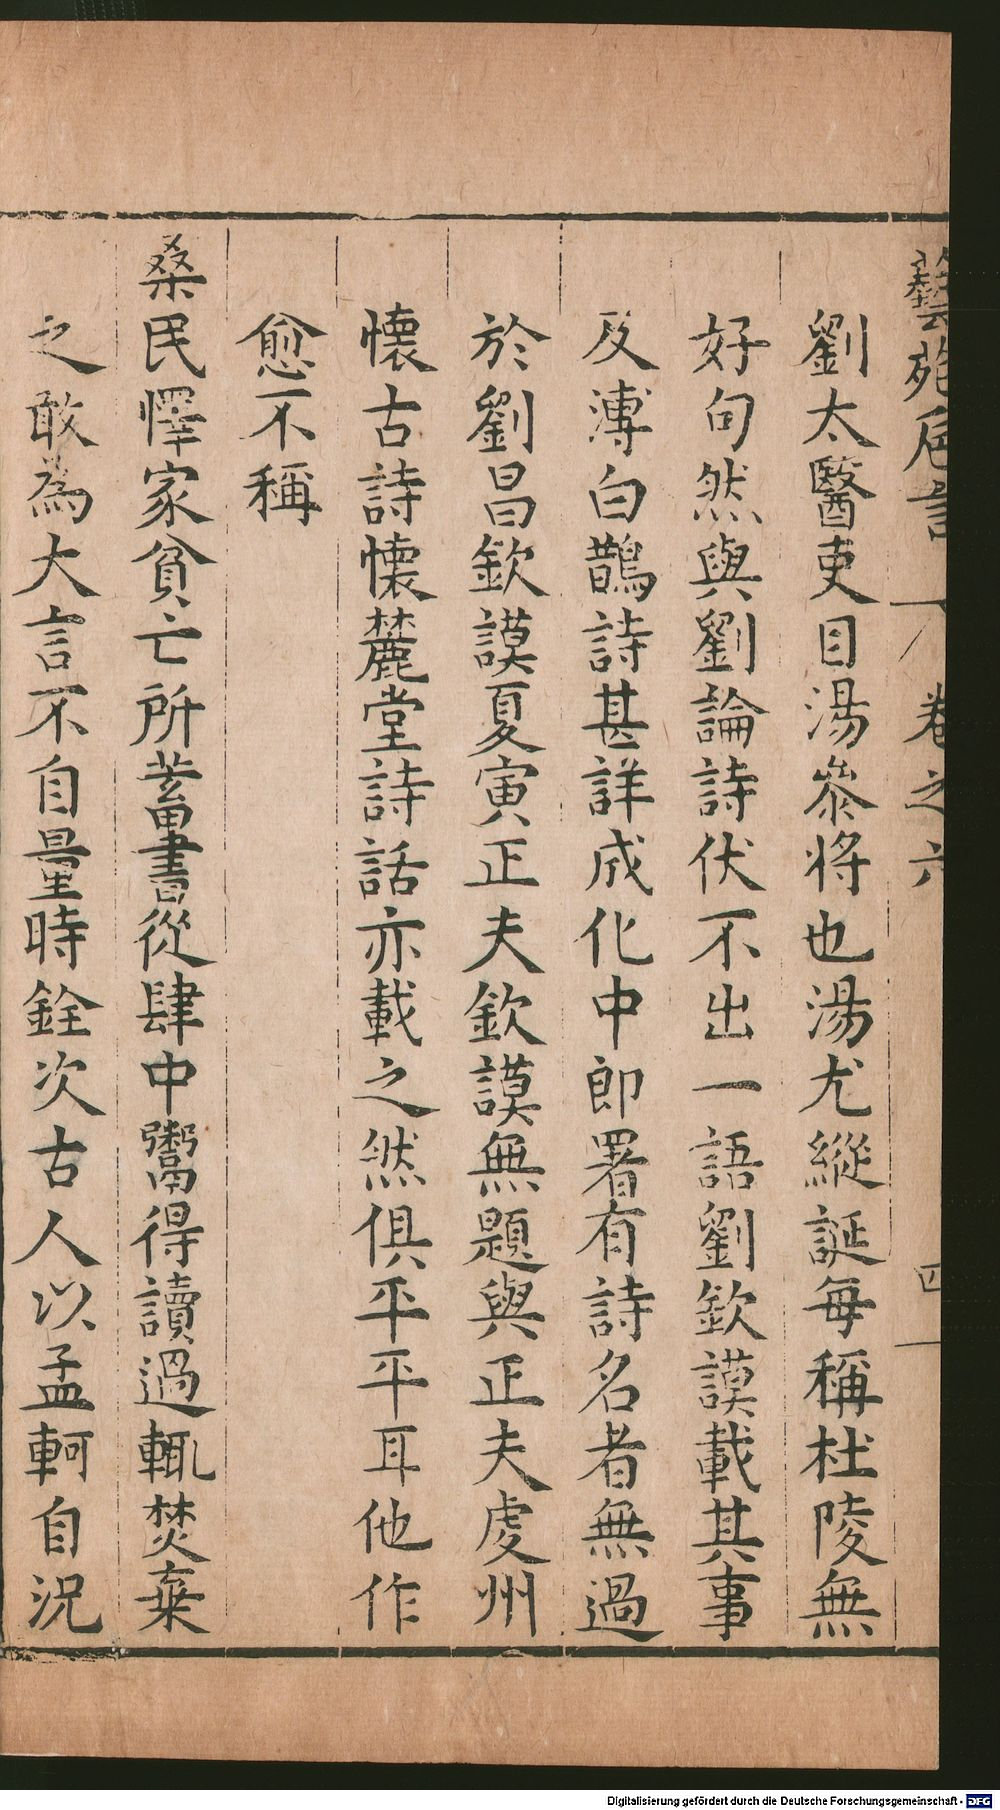 藝苑卮言 卷之六 四
劉太醫吏目湯叅將也湯尤縱誕每稱杜陵無
好句然與劉論詩伏不出一語劉欽謨載其事
及溥白鵲詩甚詳成化中郎署有詩名者無過
於劉昌欽謨夏寅正夫欽謨無題與正夫虔州
懷古詩懷麓堂詩話亦載之然俱平平耳他作
愈不稱
桑民懌家貧亡所蓄書從肆中鬻得讀過輒焚棄
之敢為大言不自量時銓次古人以孟軻自況
Digitalisierung gefördert durch die Deutsche Forschungsgemeinschaft - DFG